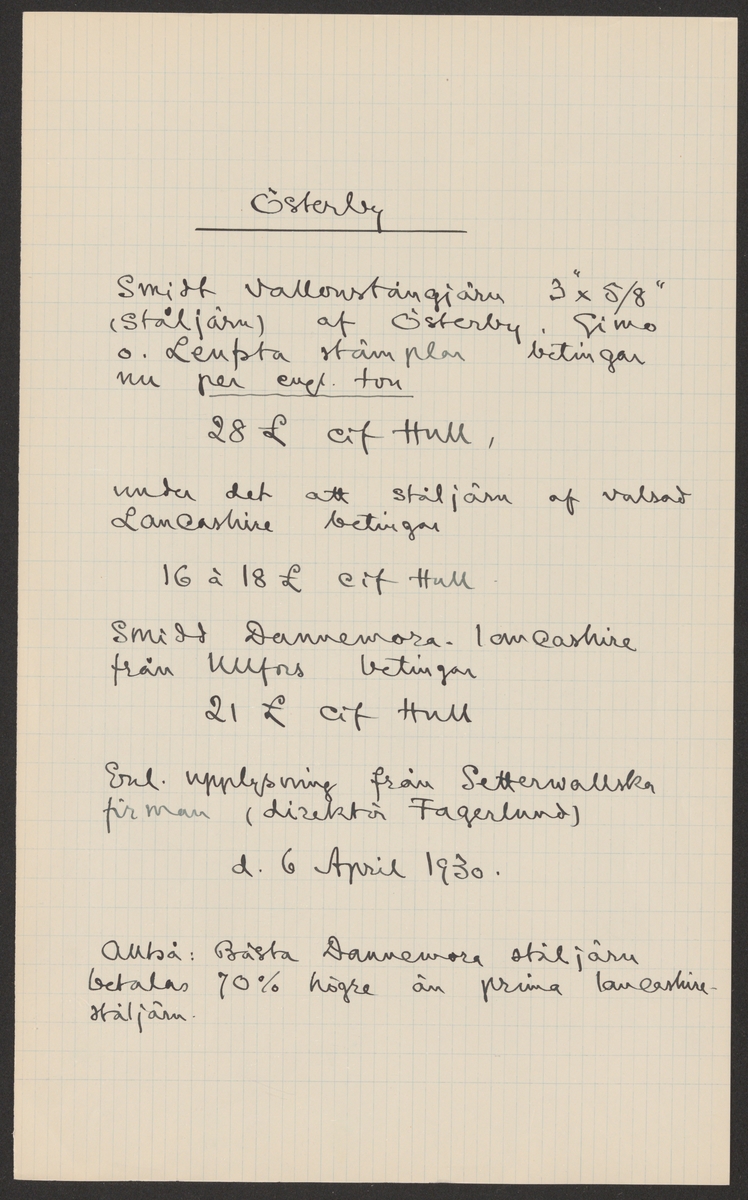 Österby
Smidt Vallonstångjärn 3" x 5/8"
(Ståljärn) af Österby, Gimo
o. Leufsta stämplar betingar
nu per engl. ton
28 £ cif Hull,
under det att ståljärn af valsad
Lancashire betingar
16 à 18 £ cif Hull
Smidd Dannemora-lancashire
från Ullfors betingar
21 £ cif Hull
Enl. upplysning från Setterwallska
firman (direktör Fagerlund)
d. 6 April 1930.
Alltså: Bästa Dannemora ståljärn
betalas 70% högre än prima lancashire-
ståljärn.